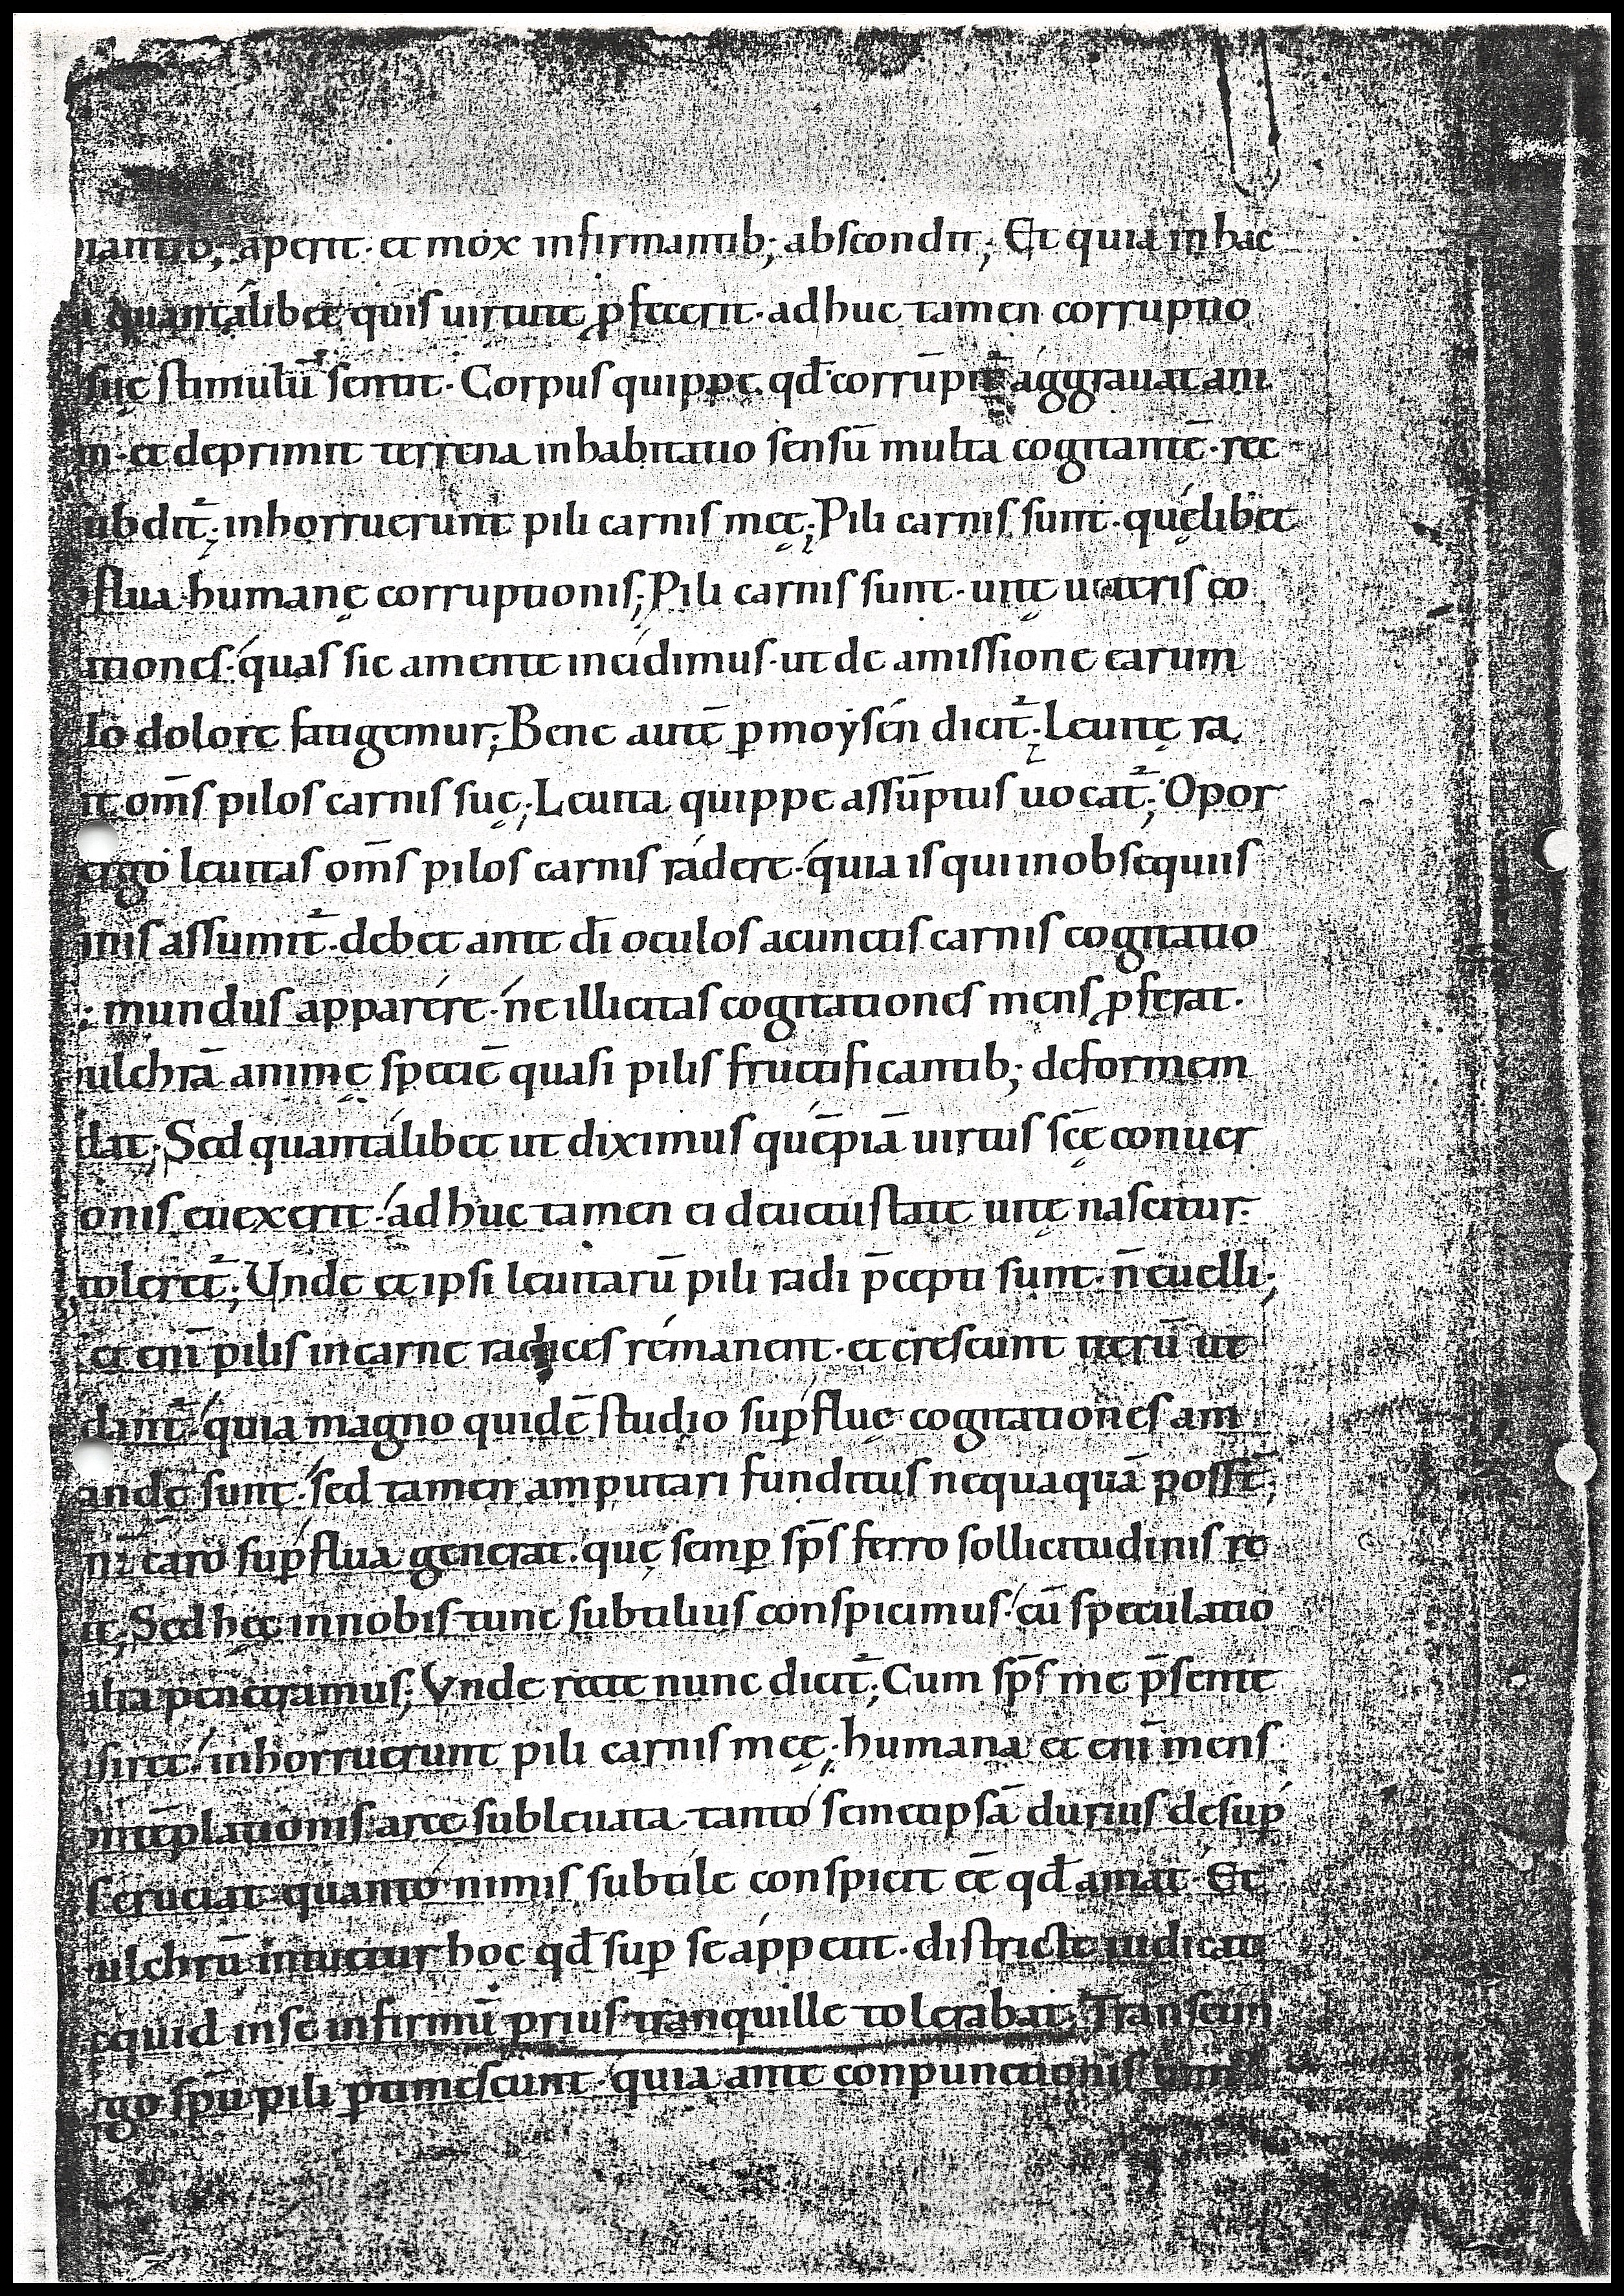 aperit· et mox infirmantib; abscondit; Et quia in hac
quantálibet quis uirtute ꝓfecerit· adhuc tamen corruptio
suę stimulū sentit· Corpus quippe qd̄ corrūpit̄ aggrauat ani
m· et deprimit terrena inhabitatio sensū multa cogitantē· rec
ubdit̄; inhorruerunt pili carnis męę; Pili carnis sunt· quęlibet
flua humanę corruptionis; Pili carnis sunt· uitę ueteris co
ationes· quas sic a mente incidimus· ut de amissione earum
lo dolore fatigemur; Bene autē ꝑ moysén dicit̄; Leuitę ra
t om̄s pilos carnis suę; Leuita quippe assūptus uocat̄; Opor
ergo leuitas om̄s pilos carnis rádere· quia is qui in obsequiis
inis assumit̄· debet ante dī oculos a cunctis carnis cogitatio
; mundus apparére· ne illicitas cogitationes mens ꝓferat·
ulchrā animę speciē quasi pilis fructificantib; deformem
dat; Sed quantálibet ut diximus quēpiā uirtus scę̄ conuer
onis euexerit· adhuc tamen ei de uetustate uitę nascitur·
toleret̄; Unde et ipsi leuitarū pili radi p̄cepti sunt· n̄ euelli;
et enī pilis in carne radices rémanent· et crescunt iterū ut
dant̄· quia magno quidē studio suꝑfluę cogitationes am
andę sunt· sed tamen amputari funditus nequaquā possē̄t;
caro suꝑflua generat· quę semꝑ sp̄s ferro sollicitudinis re
t; Sed hęc in nobis tunc subtilius conspicimus· cū speculatio
alta penetramus; Vnde recte nunc dicit̄; Cum sp̄s me p̄sente
siret· inhorruerunt pili carnis męę; humana et enī mens
ntēplationis arce subleuata tantó semetipsā durius de suꝑ
s cruciat· quantó nimis subtile conspicit ēē qd̄ amat· Et
ulchrū intuetur hoc qd̄ suꝑ se áppetit· districte iudicat
cquid in se infirmū prius tranquille tolerabat; Transeun
rgo spū pili ꝑtimescunt· quia ante conpunctionis